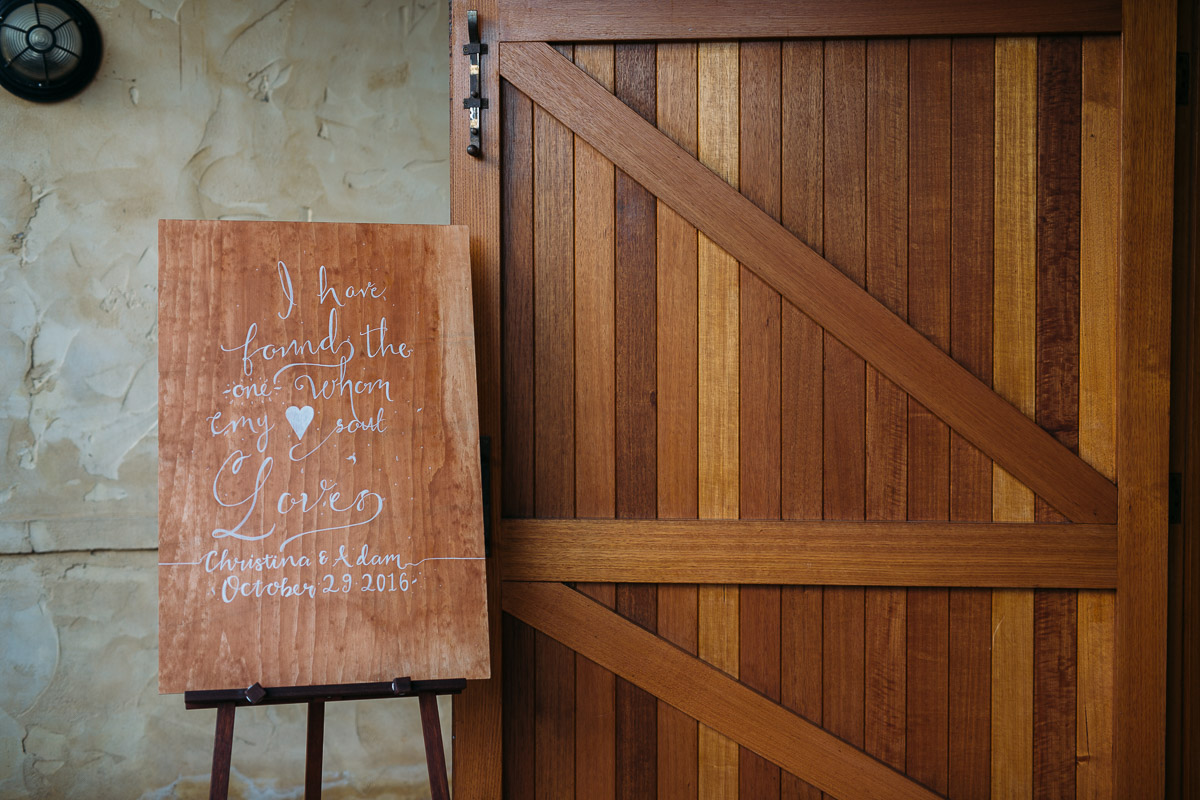 I have
found the
-one- whom
my soul
Loves
Christina & Adam
October 29 2016